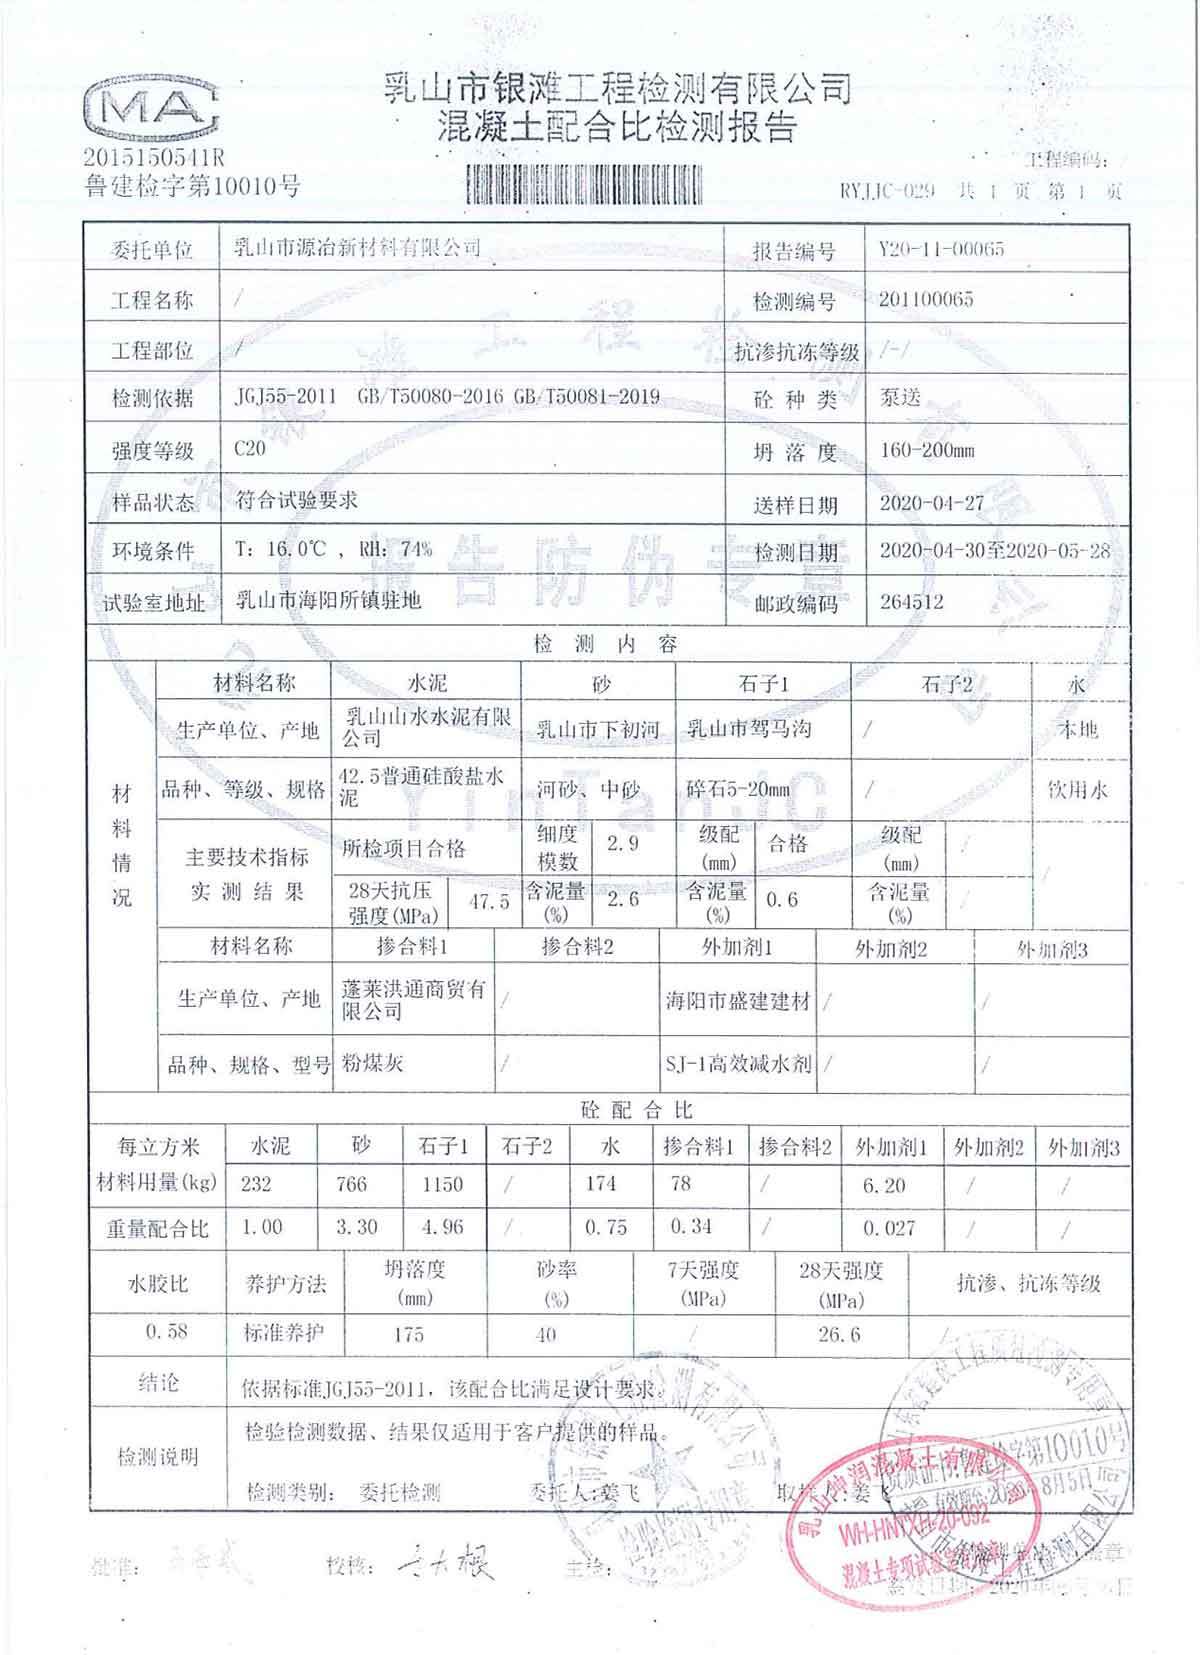 MA
2015150541R
鲁建检字第10010号
乳山市银滩工程检测有限公司
混凝土配合比检测报告
工程编码:
RYJJC-029 共 1 页 第 1 页
委托单位 乳山市源冶新材料有限公司 报告编号 Y20-11-00065
工程名称 / 检测编号 201100065
工程部位 / 抗渗抗冻等级 /-/
检测依据 JGJ55-2011 GB/T50080-2016 GB/T50081-2019 砼 种 类 泵送
强度等级 C20 坍 落 度 160-200mm
样品状态 符合试验要求 送样日期 2020-04-27
环境条件 T: 16.0℃ , RH: 74% 检测日期 2020-04-30至2020-05-28
试验室地址 乳山市海阳所镇驻地 邮政编码 264512
报告防伪专章
YinTanJC
检 测 内 容
材料情况
材料名称 水泥 砂 石子1 石子2 水
生产单位、产地 乳山山水水泥有限公司 乳山市下初河 乳山市驾马沟 / 本地
品种、等级、规格 42.5普通硅酸盐水泥 河砂、中砂 碎石5-20mm / 饮用水
主要技术指标 所检项目合格 细度模数 2.9 级配(mm) 合格 级配(mm) / /
实 测 结 果 28天抗压强度(MPa) 47.5 含泥量(%) 2.6 含泥量(%) 0.6 含泥量(%) /
材料名称 掺合料1 掺合料2 外加剂1 外加剂2 外加剂3
生产单位、产地 蓬莱洪通商贸有限公司 / 海阳市盛建建材 / /
品种、规格、型号 粉煤灰 / SJ-1高效减水剂 / /
砼 配 合 比
每立方米 水泥 砂 石子1 石子2 水 掺合料1 掺合料2 外加剂1 外加剂2 外加剂3
材料用量(kg) 232 766 1150 / 174 78 / 6.20 / /
重量配合比 1.00 3.30 4.96 / 0.75 0.34 / 0.027 / /
水胶比 养护方法 坍落度(mm) 砂率(%) 7天强度(MPa) 28天强度(MPa) 抗渗、抗冻等级
0.58 标准养护 175 40 / 26.6 /
结论 依据标准JGJ55-2011, 该配合比满足设计要求。
检测说明 检验检测数据、结果仅适用于客户提供的样品。
检测类别: 委托检测 委托人:姜飞 取样人:姜飞
批准: 校核: 主检:
乳山坤润混凝土有限公司
WH-HNTXH-20-092
混凝土专项试验室